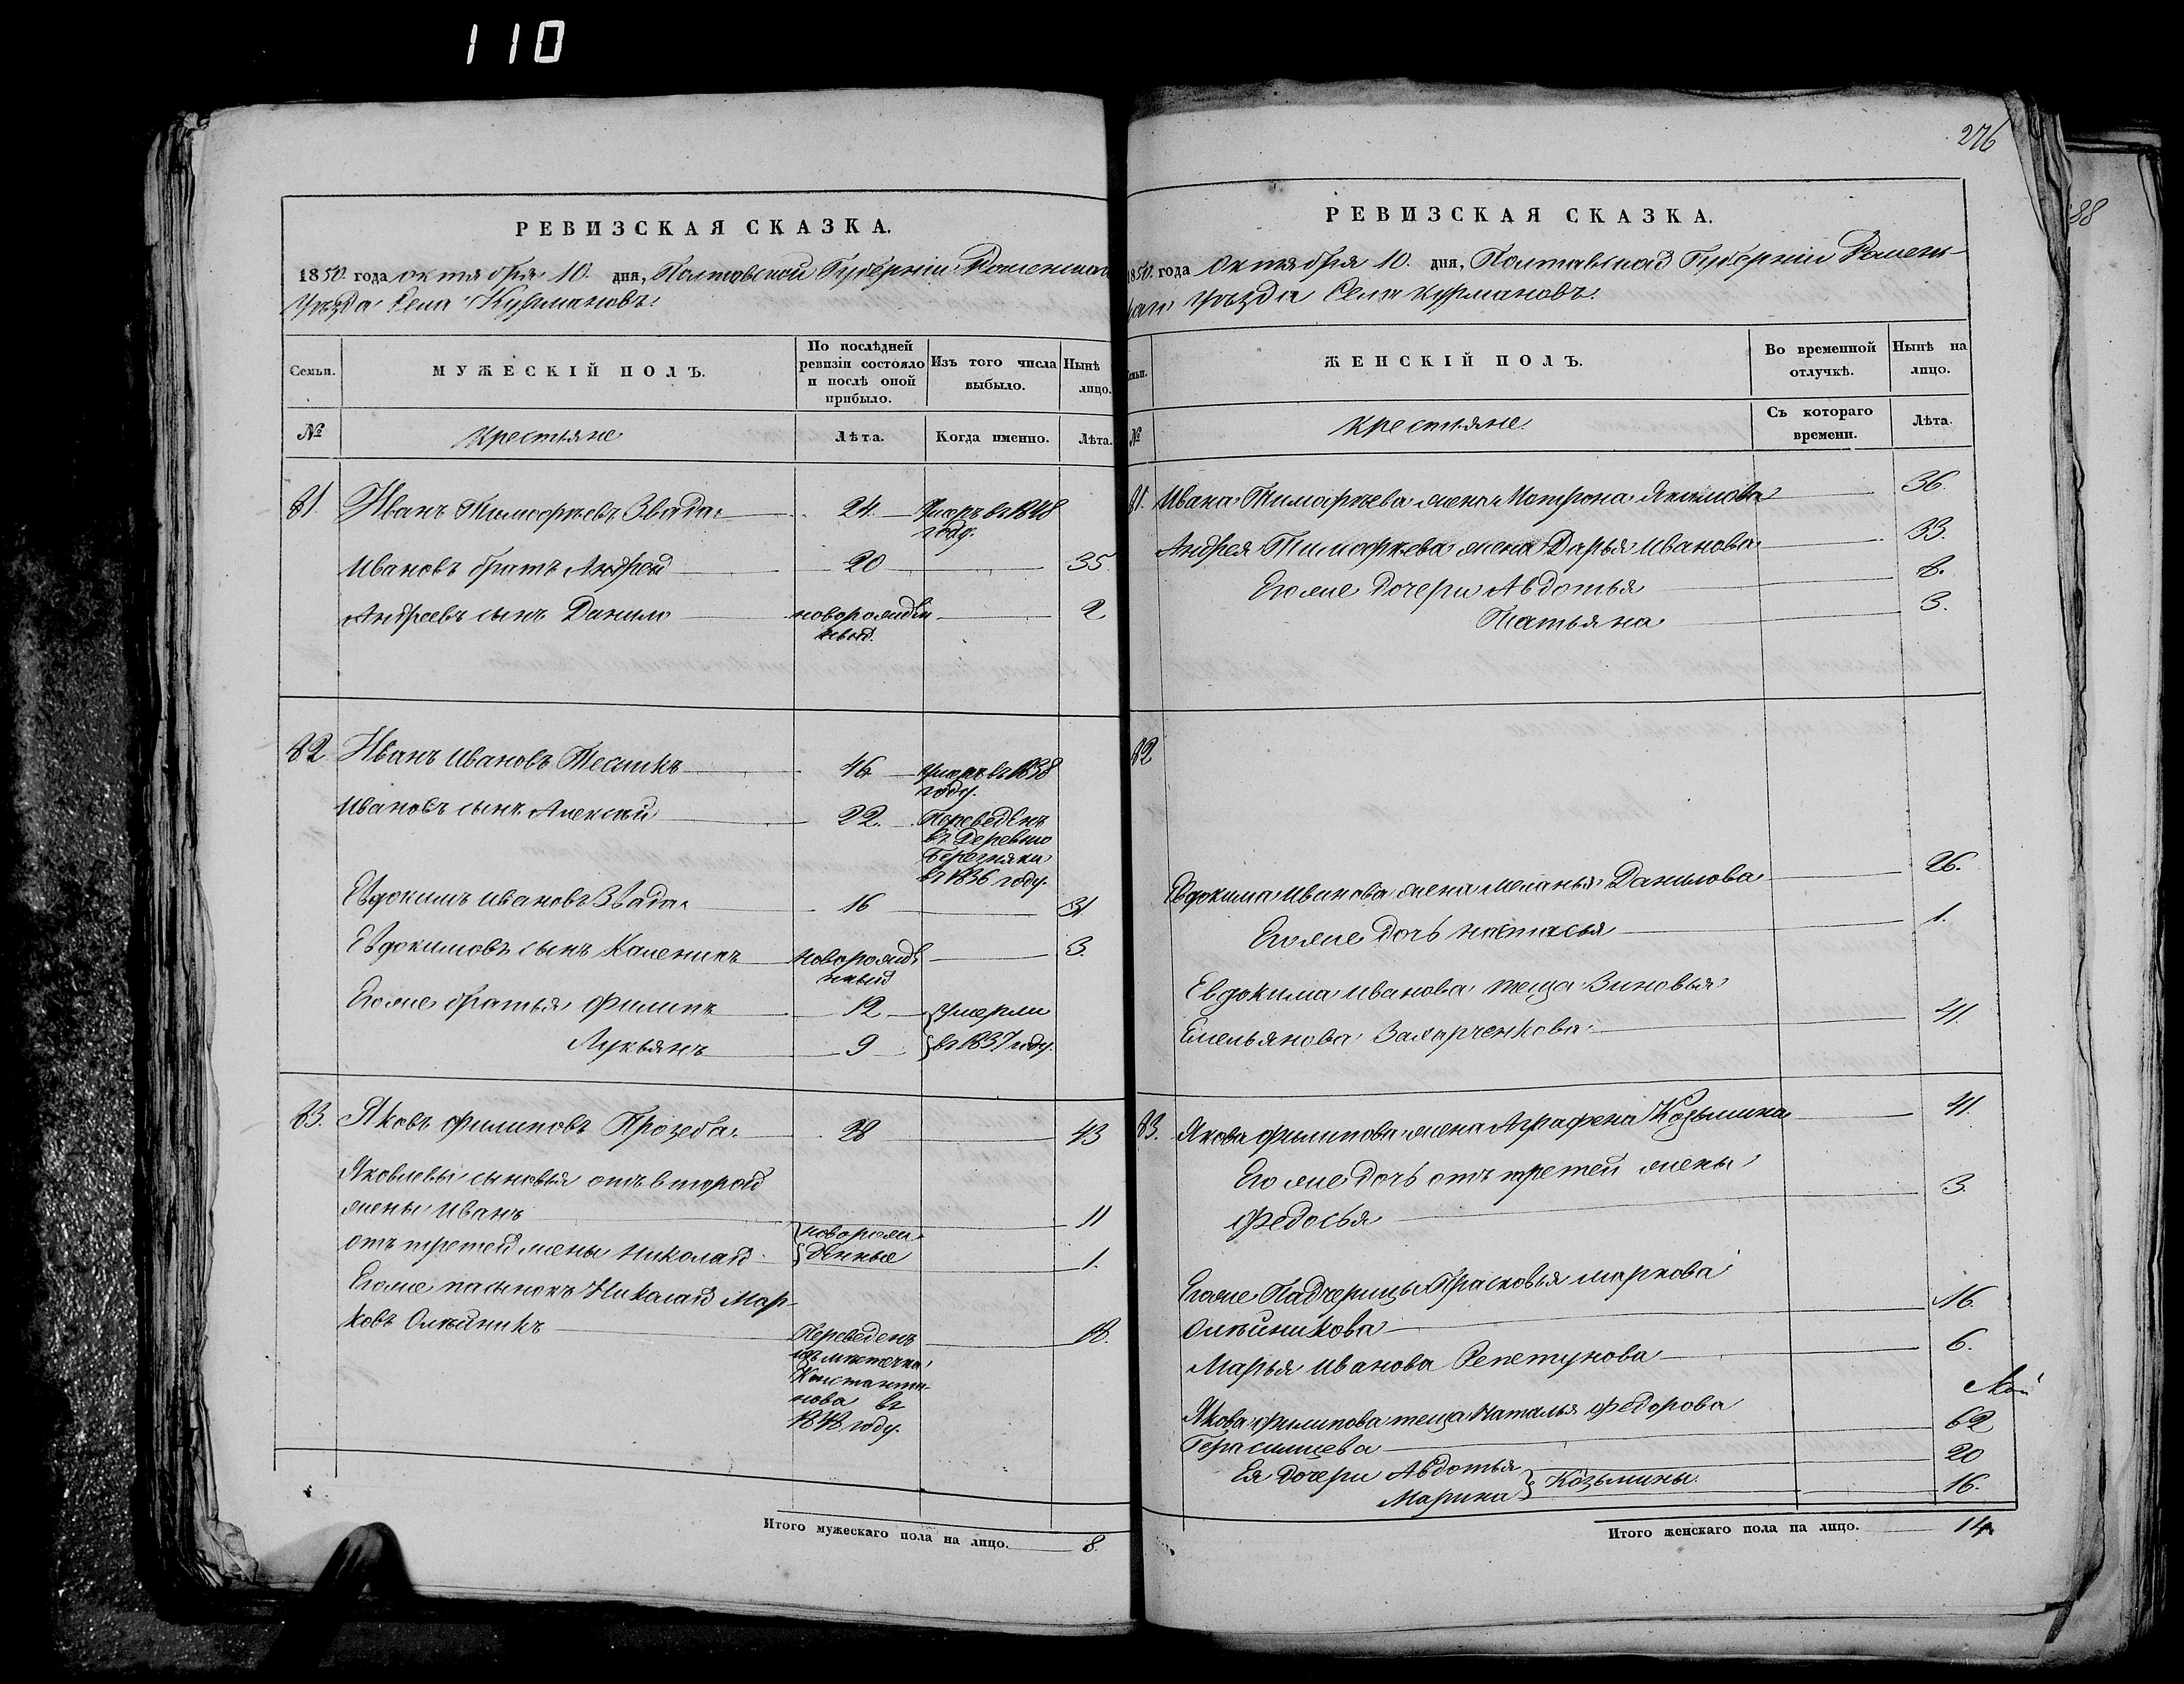 110
РЕВИЗСКАЯ СКАЗКА.
1850. года октября 10. дня, Полтавской Губерніи Роменскаго
Уѣзда Села Курмановъ.
Семьи.
МУЖЕСКІЙ ПОЛЪ.
По послѣдней ревизіи состояло и послѣ оной прибыло.
Изъ того числа выбыло.
Нынѣ лицо.
№
Крестьяне
Лѣта.
Когда именно.
Лѣта.
81 Иванъ Тимофѣевъ Звада 24. Умеръ въ 1848
году.
Ивановъ братъ Андрей 20 35.
Андреевъ сынъ Данило новорожден 2
ный.
82 Иванъ Ивановъ Тесликъ 46 Умеръ въ 1838
году.
Ивановъ сынъ Алексѣй 22. Переведенъ
въ Деревню
Березняки
въ 1836 году.
Евдокимъ Ивановъ Звада 16 31
Евдокимовъ сынъ Каленикъ новорожден 3.
ный
Егоже братья Филипъ 12 умерли
Лукьянъ 9 въ 1837 году.
83. Яковъ Филиповъ Прозеба 28 43
Яковлевы сыновья отъ второй
жены Иванъ 11
новорож
отъ третей жены Николай денные 1.
Егоже пасынокъ Николай Мар-
ковъ Олѣйникъ Переведенъ 18.
изъ мѣстечка
Константи-
нова въ
1848 году.
Итого мужескаго пола на лицо. 8.
276
88
РЕВИЗСКАЯ СКАЗКА.
1850. года Октября 10. дня, Полтавской Губерніи Ромен-
скаго Уѣзда Села Курмановъ.
Семьи.
ЖЕНСКІЙ ПОЛЪ.
Во временной отлучкѣ.
Нынѣ на лицо.
№
Крестьяне.
Съ котораго времени.
Лѣта.
81. Ивана Тимофѣева жена Мотрона Якимова 36.
Андрея Тимофѣева жена Дарья Иванова 33.
Егоже дочери Авдотья 8.
Татьяна 3.
82
Евдокима Иванова жена Меланья Данилова 26.
Егоже дочь Настасья 1.
Евдокима Иванова теща Зиновья
Емельянова Захарченкова 41.
83. Якова Филипова жена Аграфена Козьмина 41.
Егоже дочь отъ третей жены
Федосья 3.
Егоже Падчерицы Прасковья Маркова
Олѣйникова 16.
Марья Иванова Репетунова 6.
Якова Филипова теща Наталья Федорова
Герасимцева 62
Ея дочери Авдотья 20
Козьмины.
Марина 16.
Итого женскаго пола на лицо. 14